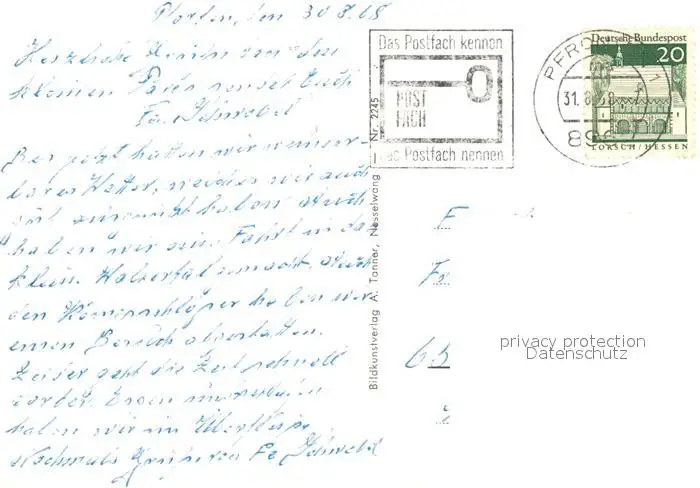 Pfronten, den 30.8.68
Herzliche Grüße von den
kleinen Ferien sendet Euch
Fa. Schwebel
Bis jetzt hatten wir wunder-
bares Wetter, welches wir auch
gut ausgenutzt haben. Auch
haben wir eine Fahrt in das
kleine Walsertal gemacht. Auch
den Königsschlößer haben wir
einen Besuch abgestattet.
Leider geht die Zeit schnell
vorbei.
haben wir im
Nochmals Grüße von Fa. Schwebel
Das Postfach kennen
POST
FACH
Das Postfach nennen
PFRONTEN 1
31.8.68
Deutsche Bundespost
20
LORSCH / HESSEN
Bildkunstverlag A. Tanner, Nesselwang Nr. 2245
F
Fr
65
privacy protection
Datenschutz